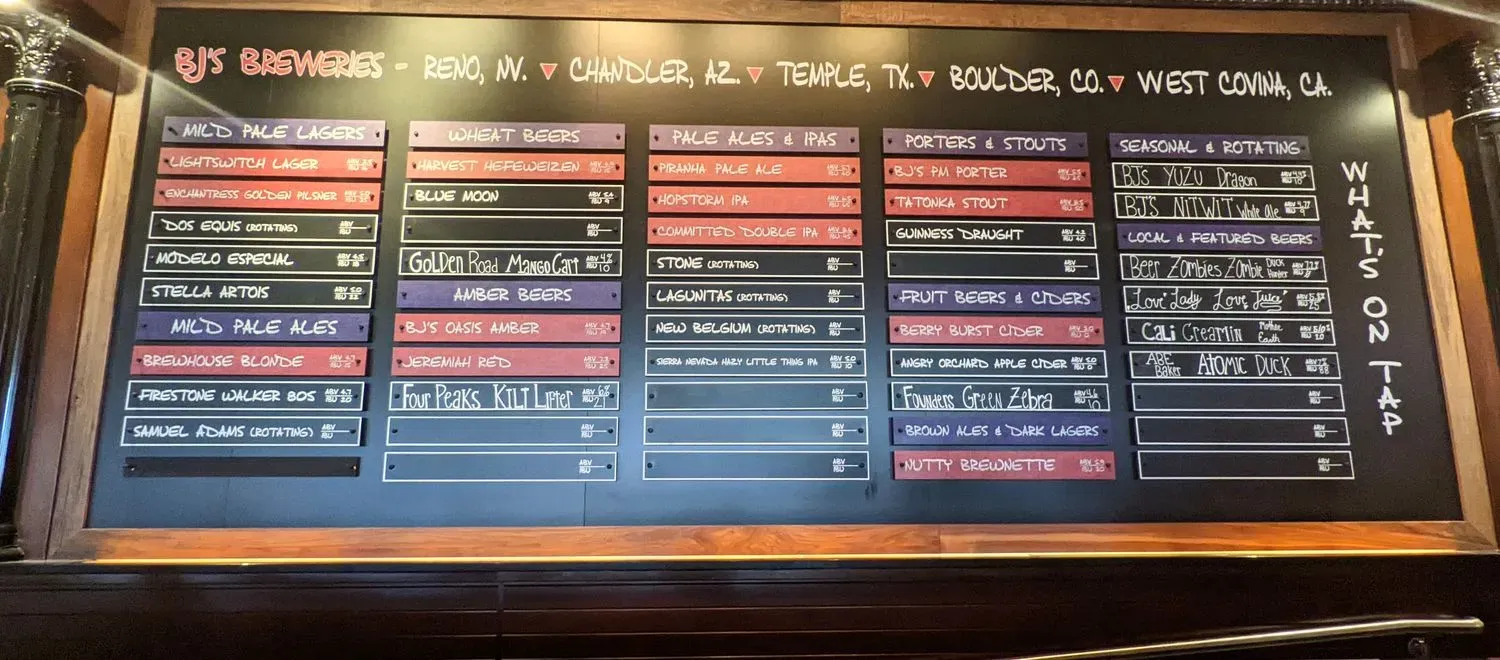 BJ'S BREWERIES - RENO, NV. CHANDLER, AZ. TEMPLE, TX. BOULDER, CO. WEST COVINA, CA.
MILD PALE LAGERS
LIGHTSWITCH LAGER
ENCHANTRESS GOLDEN PILSNER
DOS EQUIS (ROTATING) ABV IBU
MODELO ESPECIAL ABV IBU
STELLA ARTOIS ABV 5.0 IBU
MILD PALE ALES
BREWHOUSE BLONDE
FIRESTONE WALKER 805 ABV 4.7 IBU 20
SAMUEL ADAMS (ROTATING) ABV IBU
WHEAT BEERS
HARVEST HEFEWEIZEN
BLUE MOON ABV 5.4 IBU 9
ABV IBU
GOLDEN Road MANGO CART ABV 4% IBU 10
AMBER BEERS
BJ'S OASIS AMBER
JEREMIAH RED
FOUR PEAKS KILT LIFTER ABV 6% IBU 21
ABV IBU
ABV IBU
PALE ALES & IPAS
PIRANHA PALE ALE
HOPSTORM IPA
COMMITTED DOUBLE IPA
STONE (ROTATING) ABV IBU
LAGUNITAS (ROTATING) ABV IBU
NEW BELGIUM (ROTATING) ABV IBU
SIERRA NEVADA HAZY LITTLE THING IPA ABV 5.0 IBU 10
ABV IBU
ABV IBU
ABV IBU
PORTERS & STOUTS
BJ'S PM PORTER
TATONKA STOUT
GUINNESS DRAUGHT ABV 4.2 IBU 40
ABV IBU
FRUIT BEERS & CIDERS
BERRY BURST CIDER
ANGRY ORCHARD APPLE CIDER ABV 5.0 IBU 0
Founders Green Zebra ABV 4.6 IBU 10
BROWN ALES & DARK LAGERS
NUTTY BREWNETTE
SEASONAL & ROTATING
BJ's YUZU Dragon
BJ'S NITWIT White Ale
LOCAL & FEATURED BEERS
Beer Zombies Zombie Duck Hunter
"Love" Lady Love Juice
CALI CREAMIN Mother Earth
ABE Baker ATOMIC DUCK
ABV IBU
ABV IBU
ABV IBU
WHAT'S ON TAP